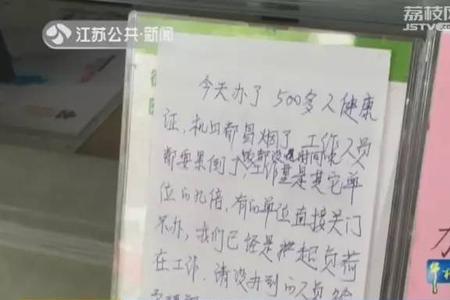 江苏公共·新闻
荔枝网
JSTV.com
今天办了500多人健康
证,机口都冒烟了 工作人员
都要累倒了 工作量是其它单
位的九倍,有的单位直接关门
不办,我们已经是超负荷
在工作.请没办到的人员